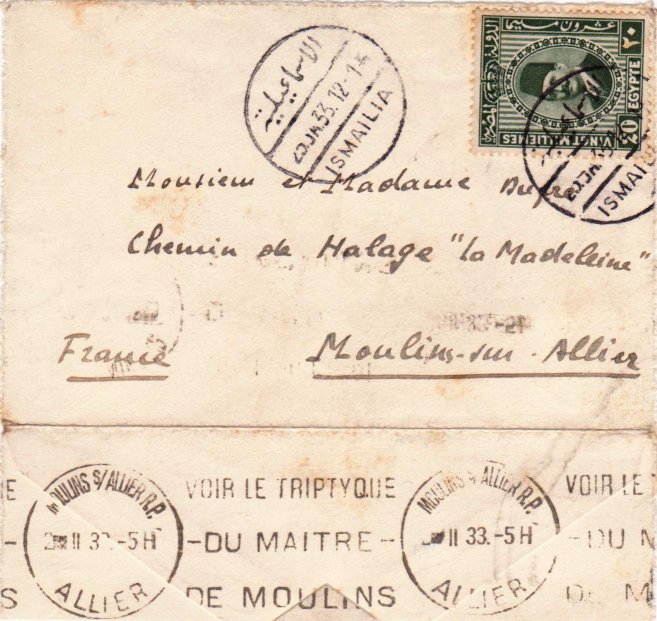 الاسماعيلية
20 JA 33.12-1
ISMAILIA
عشرون مليما ٢٠
الدولة المصرية
EGYPTE
VINGT MILLIEMES 20
20 JA 33
ISMAILIA
Monsieur et Madame Dupré
Chemin de Halage "la Madeleine"
France
Moulins-sur-Allier
MOULINS S/ALLIER R.P.
II 33.-5H
ALLIER
VOIR LE TRIPTYQUE
-DU MAITRE-
DE MOULINS
MOULINS S/ALLIER R.P.
II 33.-5H
ALLIER
VOIR LE T
-DU M
DE M